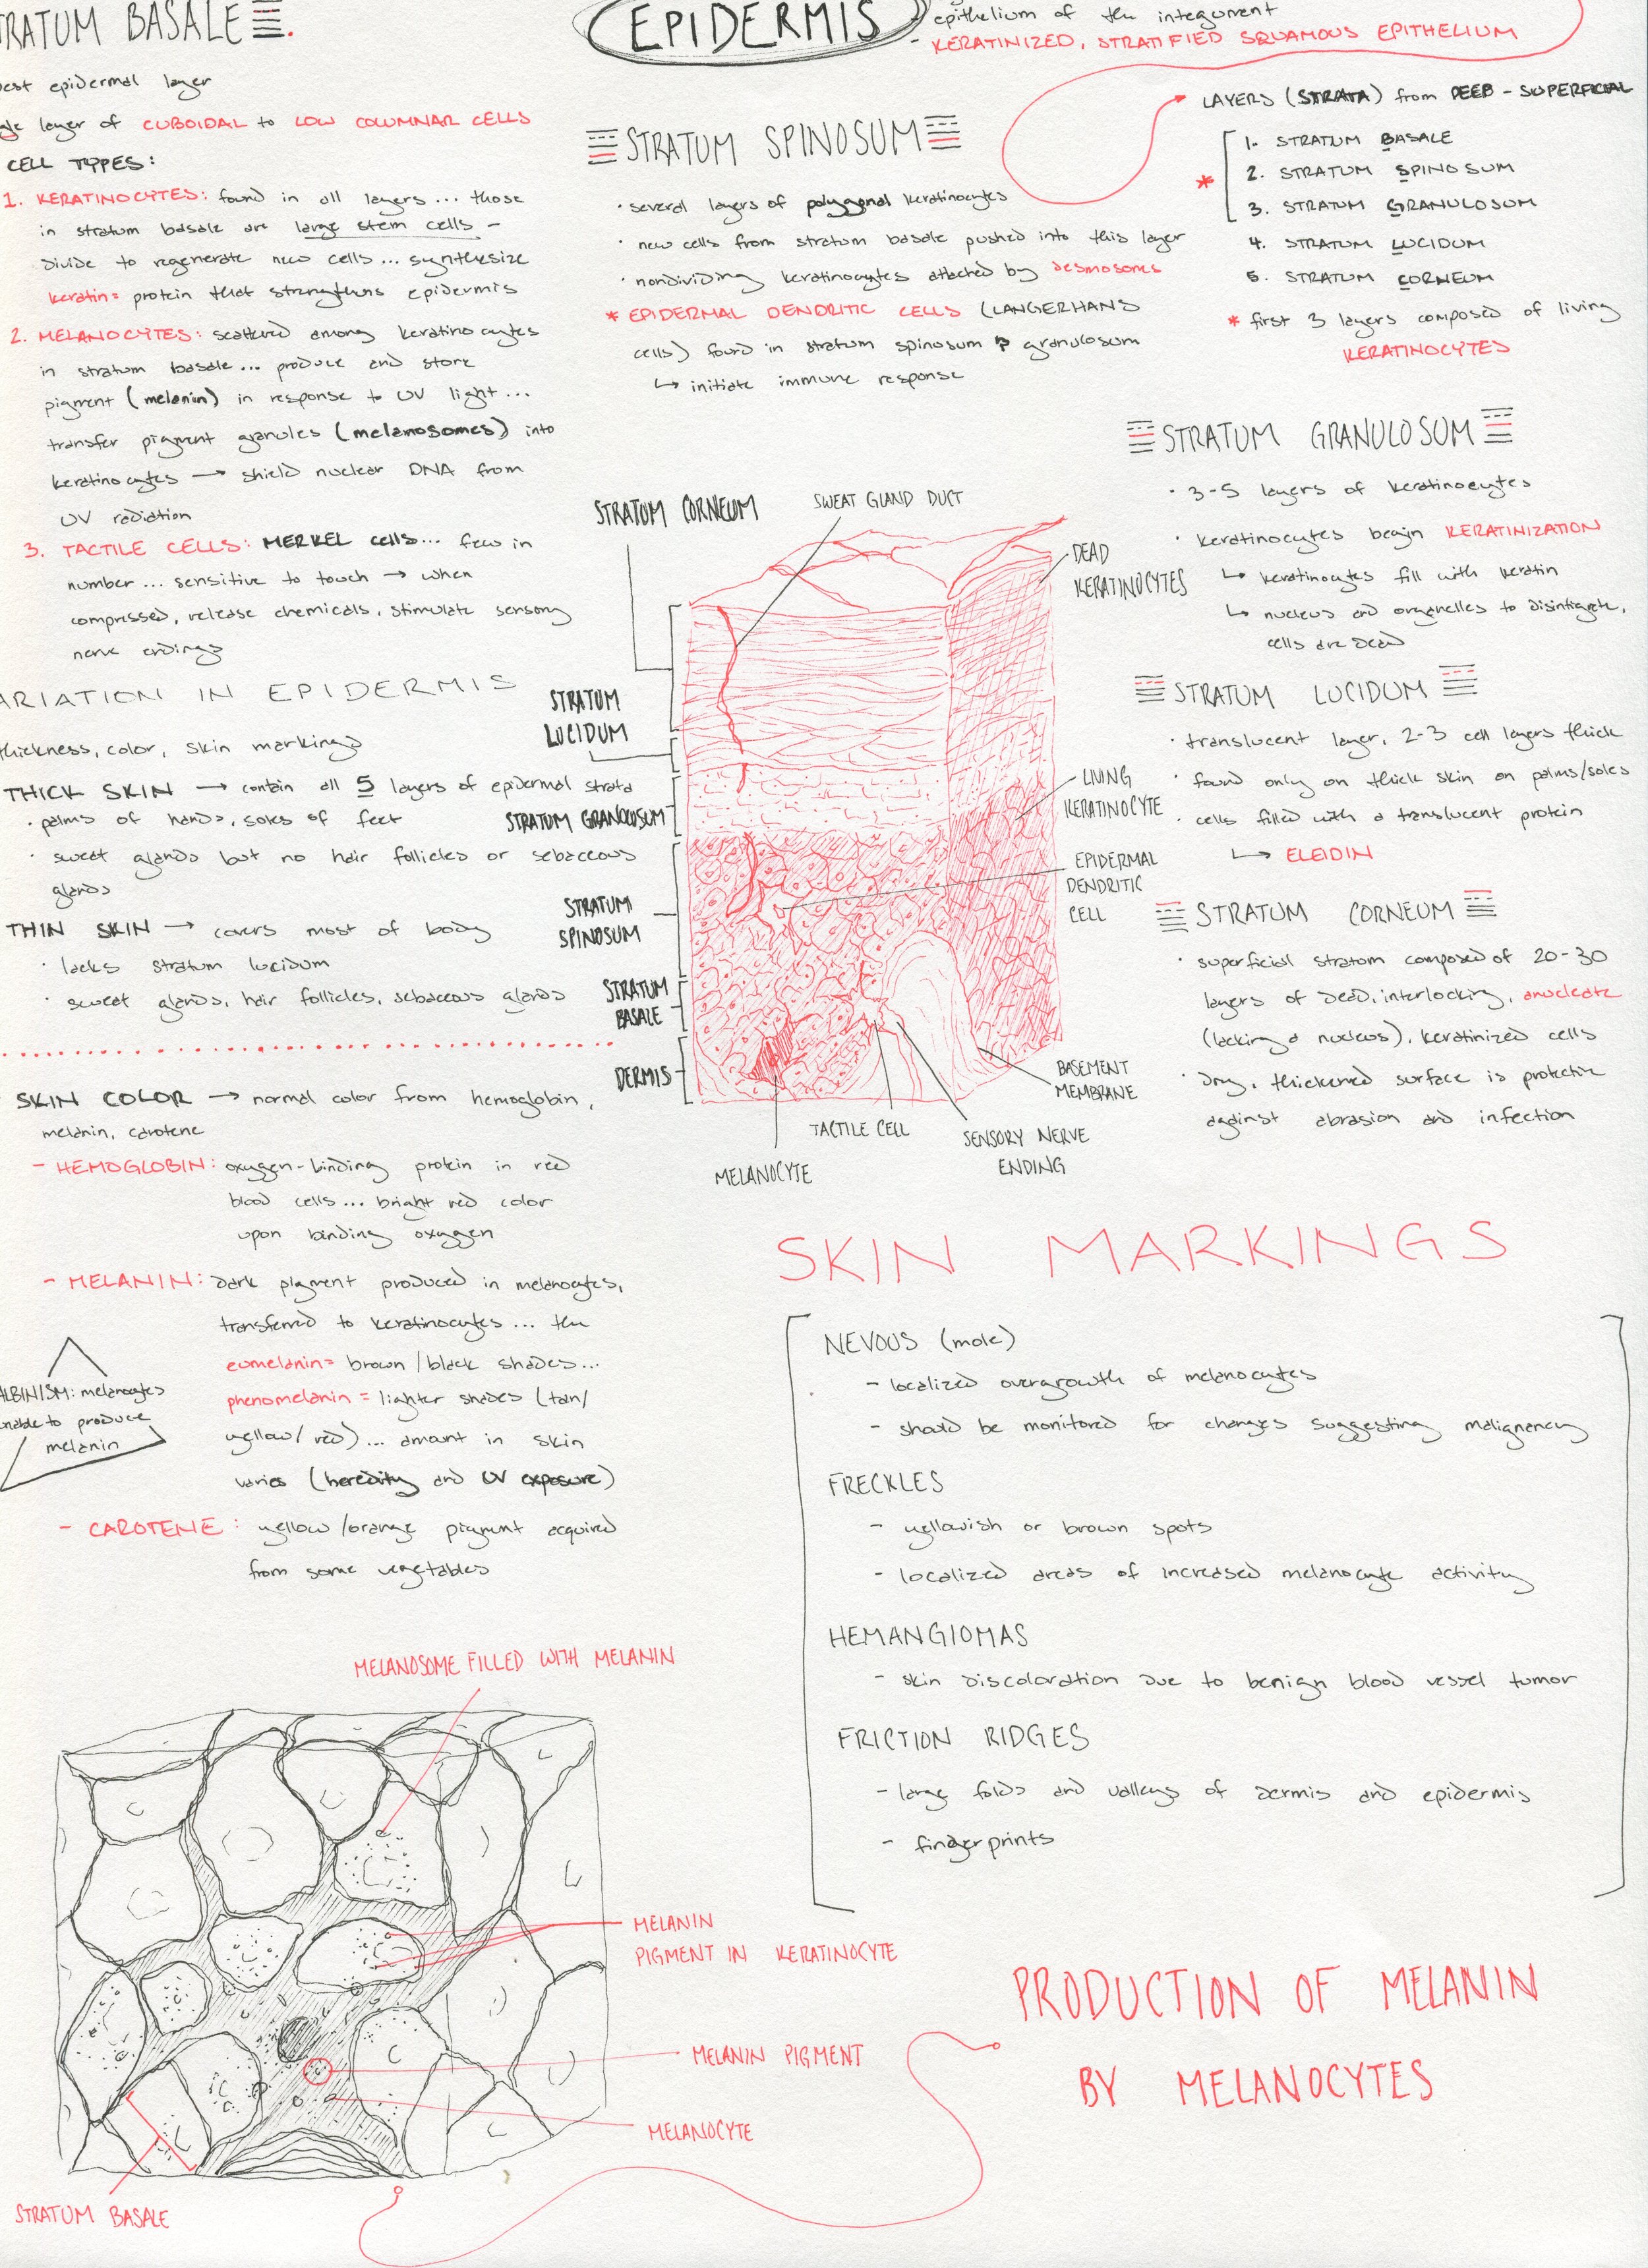 RATUM BASALE
est epidermal layer
layer of CUBOIDAL to LOW COLUMNAR CELLS
CELL TYPES:
1. KERATINOCYTES: found in all layers... those
in stratum basale are large stem cells -
divide to regenerate new cells... synthesize
keratin = protein that strengthens epidermis
2. MELANOCYTES: scattered among keratinocytes
in stratum basale... produce and store
pigment (melanin) in response to UV light...
transfer pigment granules (melanosomes) into
keratinocytes → shield nuclear DNA from
UV radiation
3. TACTILE CELLS: MERKEL cells... few in
number... sensitive to touch → when
compressed, release chemicals, stimulate sensory
nerve endings
ARIATION IN EPIDERMIS
thickness, color, skin markings
THICK SKIN → contain all 5 layers of epidermal strata
· palms of hands, soles of feet
· sweat glands but no hair follicles or sebaceous
glands
THIN SKIN → covers most of body
· lacks stratum lucidum
· sweat glands, hair follicles, sebaceous glands
SKIN COLOR → normal color from hemoglobin,
melanin, carotene
- HEMOGLOBIN: oxygen-binding protein in red
blood cells... bright red color
upon binding oxygen
- MELANIN: dark pigment produced in melanocytes,
transferred to keratinocytes... the
eumelanin = brown/black shades...
phenomelanin = lighter shades (tan/
yellow/red)... amount in skin
varies (heredity and UV exposure)
ALBINISM: melanocytes
unable to produce
melanin
- CAROTENE: yellow/orange pigment acquired
from some vegetables
EPIDERMIS
epithelium of the integument
- KERATINIZED, STRATIFIED SQUAMOUS EPITHELIUM
LAYERS (STRATA) from DEEP - SUPERFICIAL
1. STRATUM BASALE
* 2. STRATUM SPINOSUM
3. STRATUM GRANULOSUM
4. STRATUM LUCIDUM
5. STRATUM CORNEUM
* first 3 layers composed of living
KERATINOCYTES
STRATUM SPINOSUM
· several layers of polygonal keratinocytes
· new cells from stratum basale pushed into this layer
· nondividing keratinocytes attached by desmosomes
* EPIDERMAL DENDRITIC CELLS (LANGERHANS
cells) found in stratum spinosum & granulosum
↳ initiate immune response
STRATUM GRANULOSUM
· 3-5 layers of keratinocytes
· keratinocytes begin KERATINIZATION
↳ keratinocytes fill with keratin
↳ nucleus and organelles to disintigrate,
cells are dead
STRATUM LUCIDUM
· translucent layer, 2-3 cell layers thick
· found only on thick skin on palms/soles
· cells filled with a translucent protein
↳ ELEIDIN
STRATUM CORNEUM
· superficial stratum composed of 20-30
layers of dead, interlocking, anucleate
(lacking a nucleus), keratinized cells
· Dry, thickened surface is protective
against abrasion and infection
STRATUM CORNEUM
SWEAT GLAND DUCT
DEAD
KERATINOCYTES
STRATUM
LUCIDUM
STRATUM GRANULOSUM
LIVING
KERATINOCYTE
EPIDERMAL
DENDRITIC
CELL
STRATUM
SPINOSUM
STRATUM
BASALE
DERMIS
BASEMENT
MEMBRANE
TACTILE CELL
SENSORY NERVE
ENDING
MELANOCYTE
SKIN MARKINGS
NEVOUS (mole)
- localized overgrowth of melanocytes
- should be monitored for changes suggesting malignancy
FRECKLES
- yellowish or brown spots
- localized areas of increased melanocyte activity
HEMANGIOMAS
- skin discoloration due to benign blood vessel tumor
FRICTION RIDGES
- large folds and valleys of dermis and epidermis
- fingerprints
MELANOSOME FILLED WITH MELANIN
MELANIN
PIGMENT IN KERATINOCYTE
MELANIN PIGMENT
MELANOCYTE
STRATUM BASALE
PRODUCTION OF MELANIN
BY MELANOCYTES